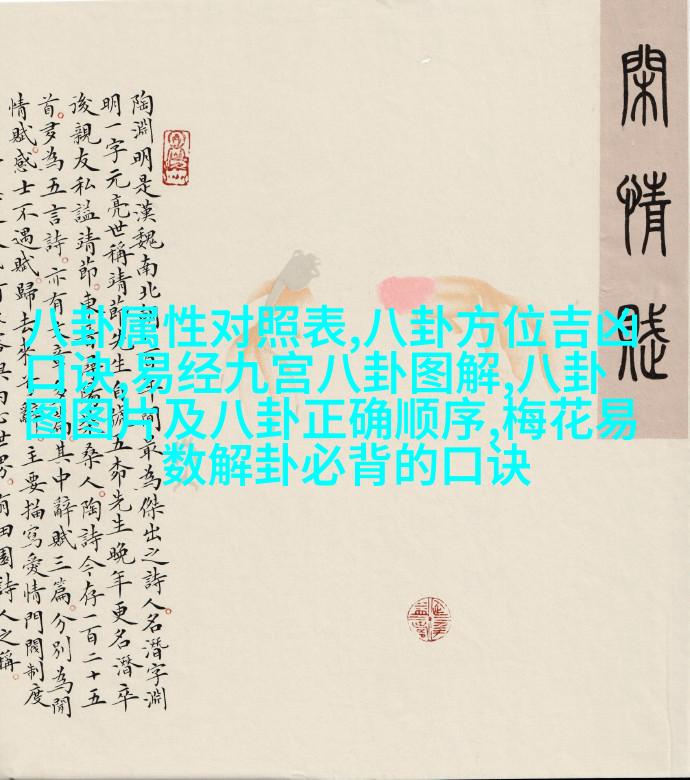 閑情賦
陶淵明是漢魏南北間最為傑出之詩人名潛字淵
明一字元亮世稱靖節先生自號五柳先生晚年更名潛卒
後親友私謚靖節東桑人陶詩今存一百二十五
首多為五言詩亦有其中辭賦三篇分別為閒
情賦感士不遇賦歸去來主要描寫愛情門閥制度
田園詩人之稱
八卦属性对照表,八卦方位吉凶
口诀,易经九宫八卦图解,八卦
图图片及八卦正确顺序,梅花易
数解卦必背的口诀